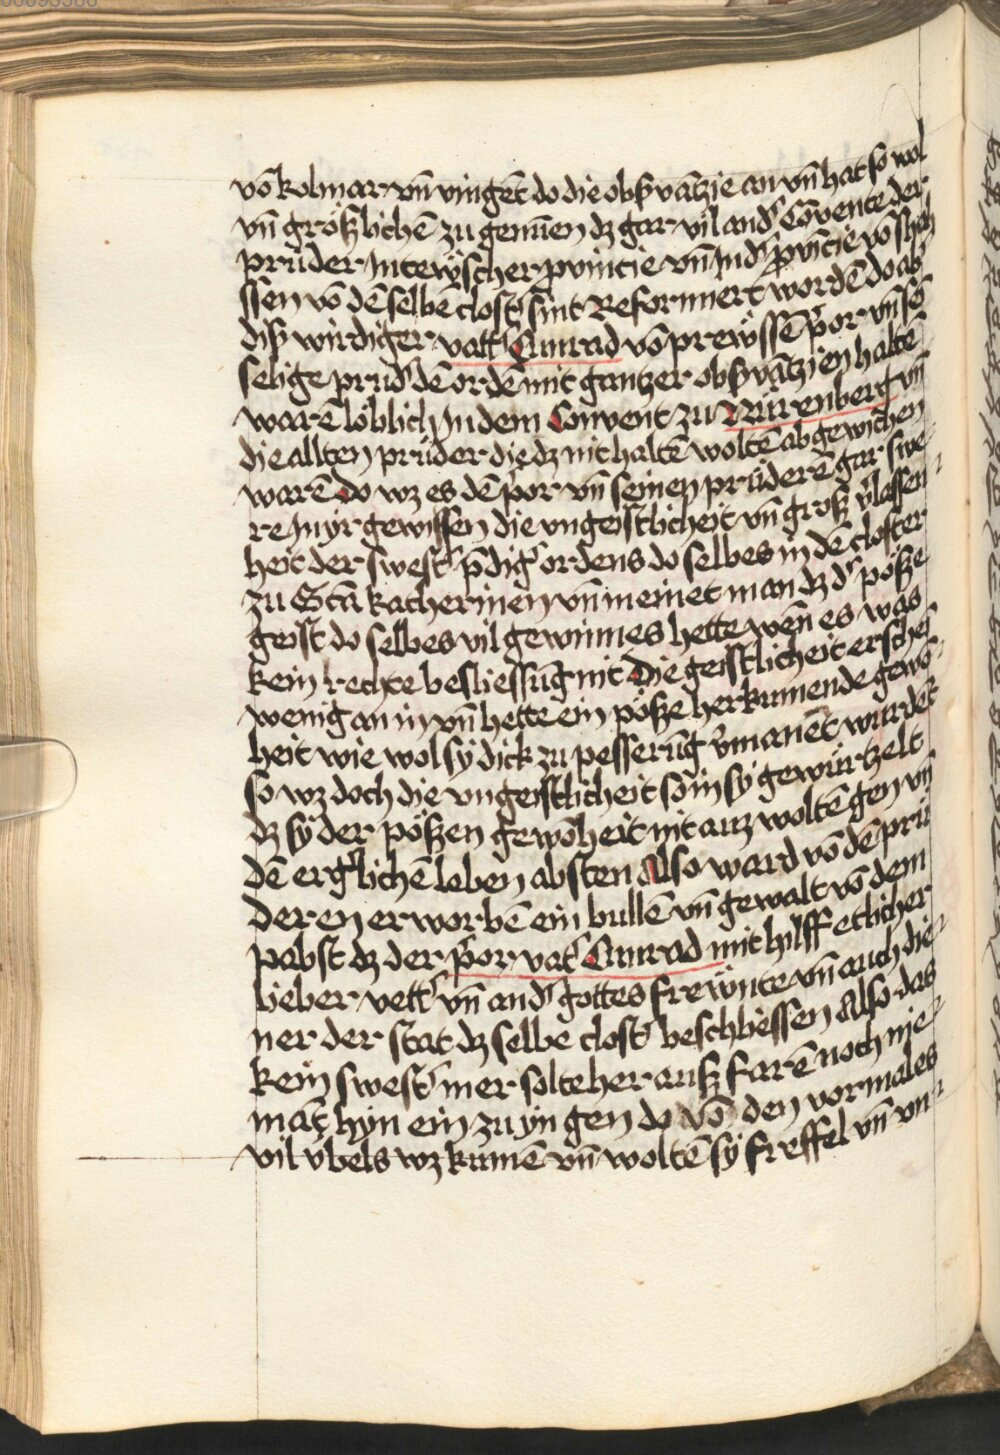 vō kolmar vn̄ vingēt do die obẞvātzie an vn̄ hat so wol
vn̄ größlichē zu genūen dz gar vil and͛ Cōvente der
prüder In tewtscher provincie vn̄ Ind͛ provīcie vō Sach
ssen vō dē selbē clost͛ sint Reformiert wordē do ab͛
diß wirdiger vatt͛ Cunrad vō prewssē p̄or vn̄ sē
selige prüd͛ dē ordē mit gantzer obẞvātzien halte
warē löblich In dem Convent zu Nürenberg vn̄
die allten prüder die dz nit haltē woltē ab gewichen
warē do wz es dē p̄or vn̄ seinen prüderē gar swe
re In yr gewissen die vngeistlicheit vn̄ groß v͛lassen
heit der swest͛ p̄dig͛ ordens do selbes in dē closter
zu Sctā katherinen vn̄ meinet man dz d͛ pöße
geist do selbes vil gewinnes hette wēn es was
kein rechte besliessūg nit die geistlicheit erschei
wenig an in vn̄ hette ein pöße herkumende gewō
heit wie wol sy dick zu pesserūg v͛manēt wurdēt
so wz doch die vngeistlicheit so in sy gewürtzelt
dz sy der pößen gewōheit nit auz woltē gen vn̄
dē erg͛lichē leben absten Also ward vō dē prü
deren erworbē ein bullē vn̄ gewalt vō dem
pabst dz der p̄or vat͛ Cunrad mit hilff etlicher
lieber vett͛ vn̄ and͛ gottes frewnte vn̄ auch die
ner der stat dz selbe clost͛ beschliessen Also das
kein swest͛ mer solte her auß farē noch nie
māt hyn ein zu yn gen do vō den vormales
vil vbels wz kumē vn̄ woltē sy freffel vn̄ vn